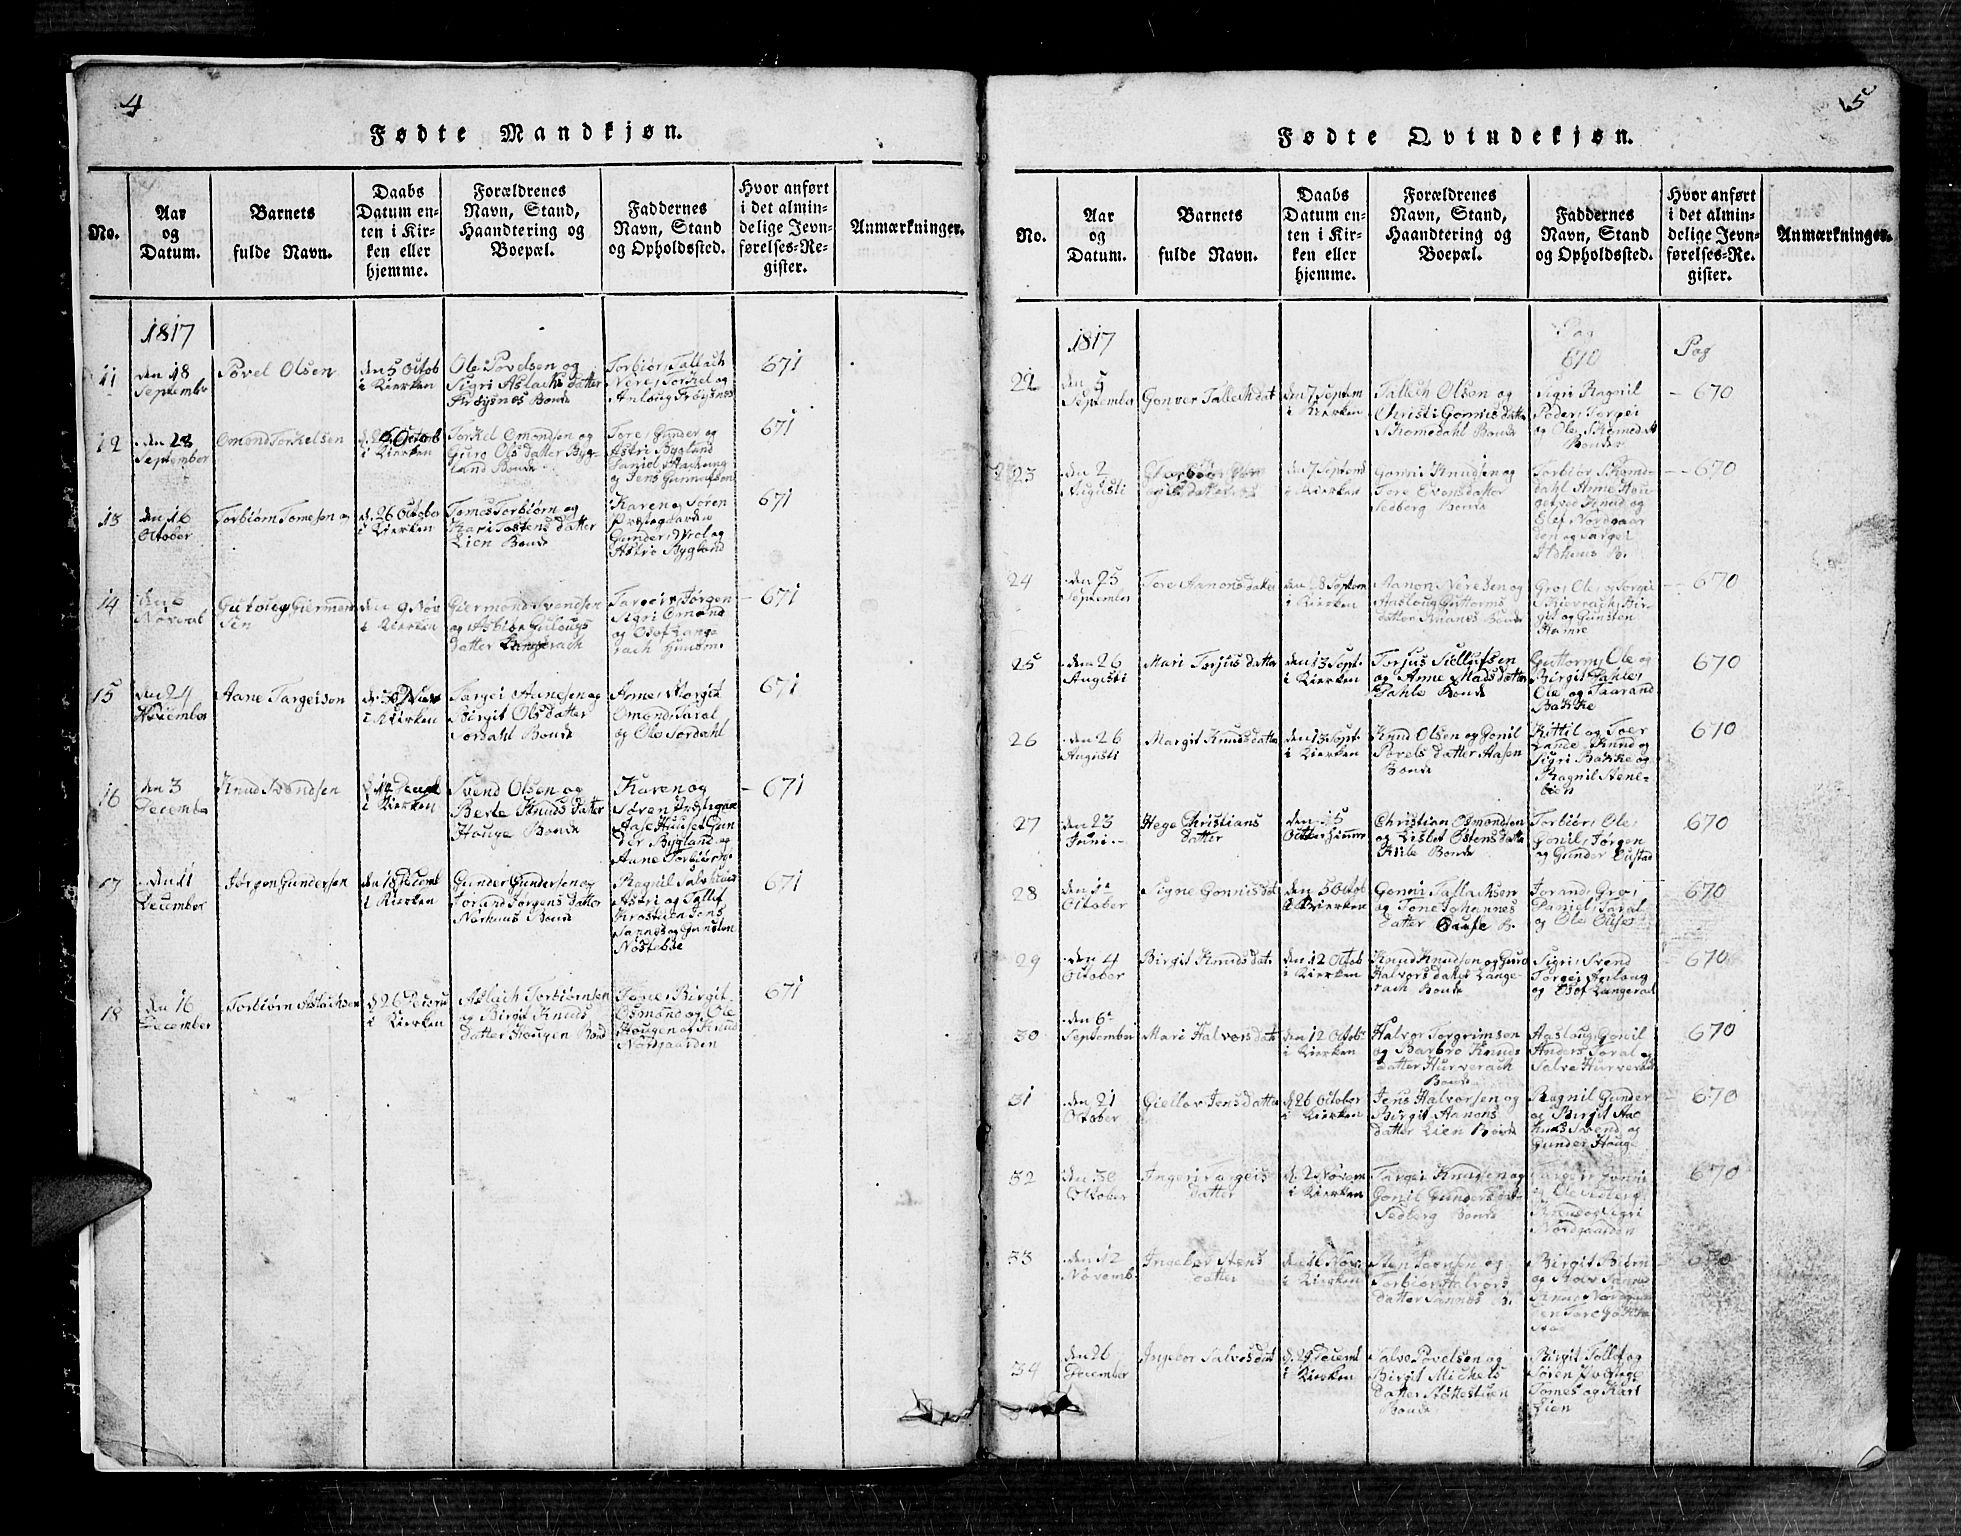 4
Fødte Mandkjøn.
No.
Aar
og
Datum.
Barnets
fulde Navn.
Daabs
Datum en-
ten i Kir-
ken eller
hjemme.
Forældrenes
Navn, Stand,
Haandtering og
Boepæl.
Faddernes
Navn, Stand
og Opholdssted.
Hvor anført
i det almin-
delige Jevn-
førelses-Re-
gister.
Anmærkninger.
1817
11
den 18
September
Povel Olsen
den 5 Octob
i Kierken
Ole Povelsen og
Sigri Aslachsdatter
Frøysnes Bonde
Torbiør, Tallach
Nere, Torkel og
Anloug Frøysnes
671
12
den 28
September
Omond Torkelsen
Octob
i Kierken
Torkel Omondsen og
Guro Olsdatter Byg-
land Bonde
Tore, Gunder og
Astri Bygland
Daniel
og Jens Gunnufsen
671
13
den 16
October
Torbiørn Tomesen
d. 26 October
i Kierken
Tomes Torbiørn og
Kari Tostensdatter
Lien Bonde
Karen og Søren
Præstegaarden
Gunder, Vrol og
Astro Bygland
671
14
den 6
Novemb
Gutoug Giermond
sen
den 9 Nov
i Kierken
Giermond Svendsen
og Asbiør Gutougs
datter Langerach
Targei, Jørgen
Sigri Omond
og Osof Lange
rach
671
15
den 24
November
Aane Targeisen
i Kierken
Targei Aanesen og
Birgit Olsdatter
Jordahl Bonde
Anne, Margit
Omond, Taral
og Ole Jordahl
671
16
den 3
December
Knud Svendsen
i Kierken
Svend Olsen og
Berte Knudsdatter
Houge Bonde
Karen og
Søren Præstegaar
Aase Huuset Gun
der Bygland og
Aane Torbiørn
671
17
den 11
December
Jørgen Gundersen
i Kierken
Gunder Gundersen og
Jorand Jørgensdatter
Norhuus Bonde
Ragnil
Astri og Tallef
Jens
Sannes og Gunsten
Nøstebøe
671
18
den 16
December
Torbiørn Aslachsen
i Kierken
Aslach Torbiørnsen
og Birgit Knuds
datter Hougen Bond
Tone, Birgit
Osmond og Ole
Hougen og Knud
Nordgaarden
671
5
Fødte Qvindekjøn.
No.
Aar
og
Datum.
Barnets
fulde Navn.
Daabs
Datum en-
ten i Kir-
ken eller
hjemme.
Forældrenes
Navn, Stand,
Haandtering og
Boepæl.
Faddernes
Navn, Stand
og Opholdssted.
Hvor anført
i det almin-
delige Jevn-
førelses-Re-
gister.
Anmærkninger.
1817
Pag
670
Pag
22
den 5
September
Gonver Tallechdat
den 7 Septem
i Kierken
Tallech Olsen og
Christi Gonnisdatter
Skomedahl Bonde
Sigri Ragnil
Peder, Torgei
og Ole Skomed
Bonde
670
23
den 2
Augusti
den 7 Septemb
i Kierken
Gonni Knudsen og
Tore Evensdatter
Sedberg Bonde
Torbiør Skome
dahl Anne Hou
get ved Knud og
Elef Nordgaar
den og Targei
B.
670
24
den 25
September
Tore Aanonsdatter
den 28 Septem
i Kierken
Aanon Neresen og
Aasloug Guttorms
datter Bonde
Gro, Ole, og Torgil
Bir
git og Gunsten
Hamre
670
25
den 26
Augusti
Mari Torjusdatter
den 13 Sept
i Kierken
Torjus Siellufsen
og Anne Madsdatter
Dahle Bonde
Guttorm, Ole og
Birgit Dahle,
Ole og Taarand
Bakke
670
26
den 26
Augusti
Margit Knudsdatter
den 13 Sept
i Kierken
Knud Olsen og Gonil
Povelsdatter Aasen
Bonde
Kittil og Toer
Lande, Knud og
Sigri Bakke og
Ragnil
670
27
den 23
Juni
Hege Christians
datter
den 5
Octbr hiemme
Christian Osmondsen
og Lislet Ostensdatter
Kile Bonde
Torbiør, Ole,
Gonil, Jørgen
og Gunder Oustad
670
28
den 1
October
Signe Gonnisdat
den 5 Octob
i Kierken
Gonni Tallachsen
og Tone Johannes
datter Ouse B.
Jorand, Gro,
Daniel, Taral
og Ole Ouse
670
29
den 4
October
Birgit Knudsdat
den 12 Octob
i Kierken
Knud Knudsen og Guro
Halvorsdatter Lange
rach Bonde
Sigri, Svend
Torgei Anloug
og Osof Langerach
670
30
den 6
September
Mari Halvorsdat
den 12 Octob
i Kierken
Halvor Torgrimsen
og Barbro Knuds
datter Hurverach
Bonde
Aasloug, Gonil
Anders Taral og
Salve Hurverach
670
31
den 21
October
Giellov Jensdatter
d. 26 October
i Kierken
Jens Halvorsen og
Birgit Aanons
datter Lien Bonde
Ragnil Gunder
og Birgit Aac
huus Svend og
Gunder Houge
670
32
den 30
October
Ingeri Targeis
datter
d. 2 Novem
i Kierken
Targei Knudsen og
Gonil Gundersdat
Sedberg Bonde
Targer,
og Ole Sedberg
Knud og Sigri
Nordgaarden
670
33
den 12
Novemb
Ingebor Stens
datter
den 16 Nov.
i Kierken
Sten Toersen og
Torbiør Halvors
datter Sannes B.
Birgit Biørn
og Stav Sannes
Knud Nordgaar
den Tarc
670
34
den 26
December
Ingebor Salvesdat
i Kierken
Salve Povelsen og
Birgit Michels
datter
Bonde
Birgit Tollef og
Søren Præstege
Tomes og Kari
Lien